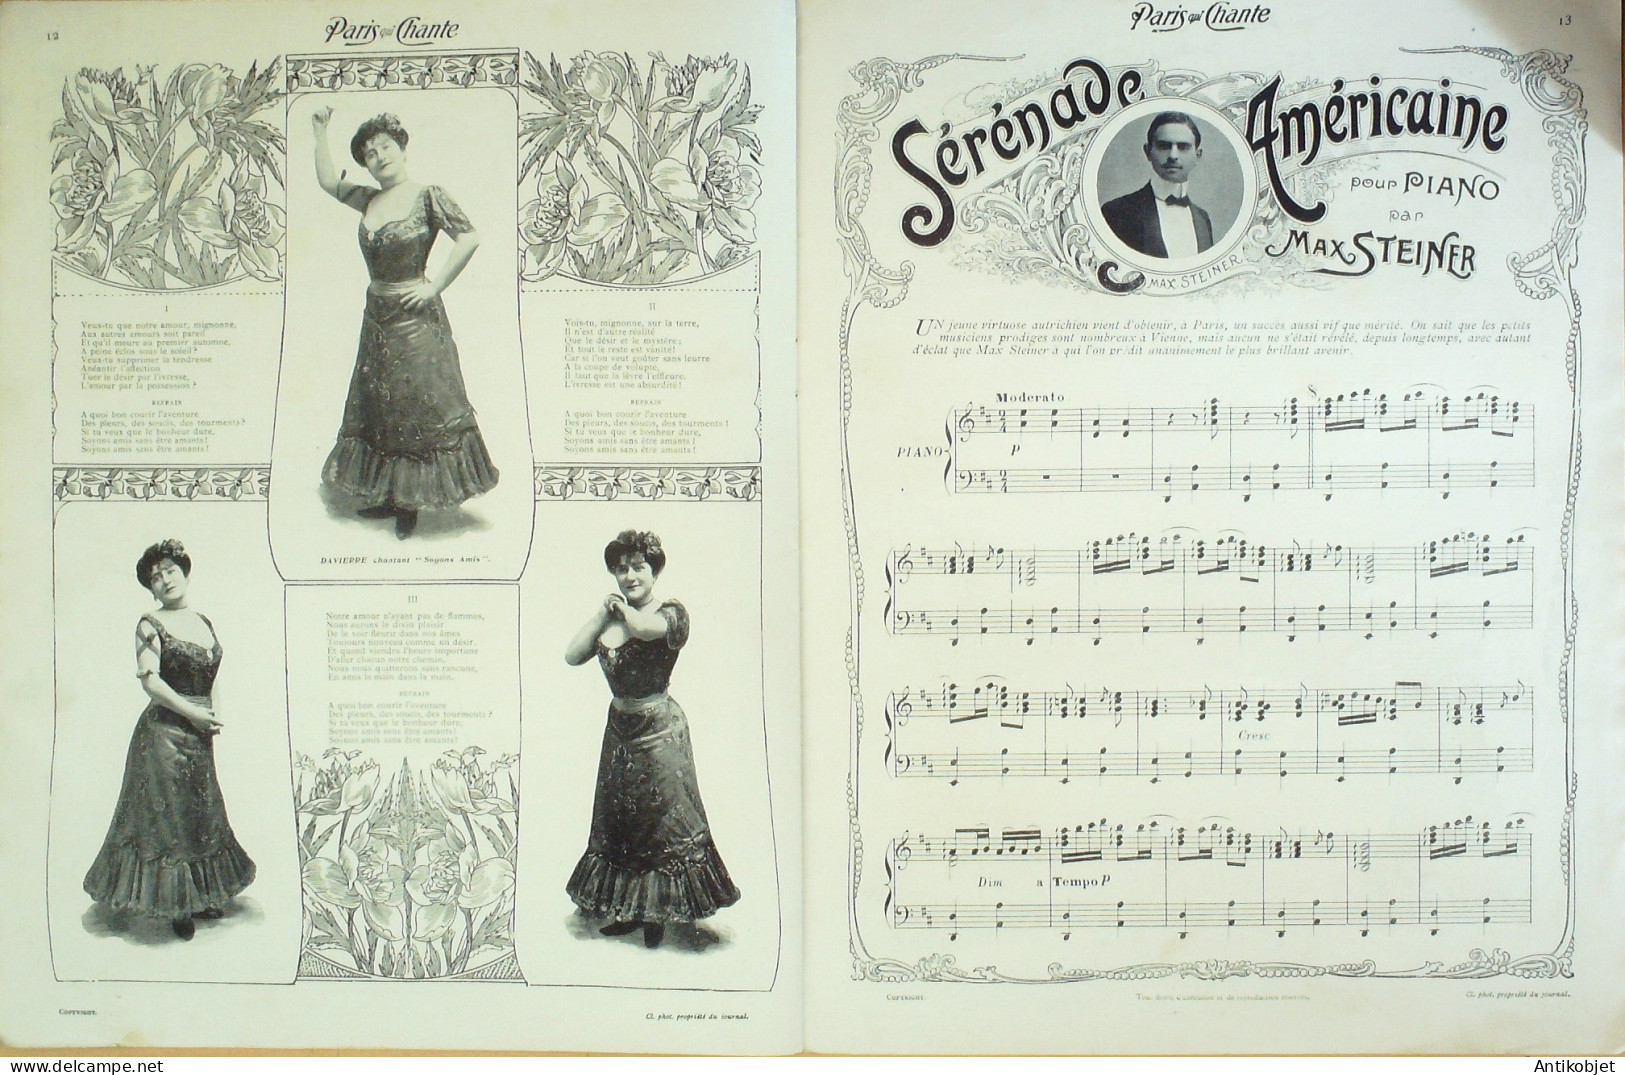 12
Paris qui Chante
I
Veux-tu que notre amour, mignonne,
Aux autres amours soit pareil
Et qu'il meure au premier automne,
A peine éclos sous le soleil?
Veux-tu supprimer la tendresse
Anéantir l'affection
Tuer le désir par l'ivresse,
L'amour par la possession?
REFRAIN
A quoi bon courir l'aventure
Des pleurs, des soucis, des tourments?
Si tu veux que le bonheur dure,
Soyons amis sans être amants!
Soyons amis sans être amants!
II
Vois-tu, mignonne, sur la terre,
Il n'est d'autre réalité
Que le désir et le mystère;
Et tout le reste est vanité!
Car si l'on veut goûter sans leurre
A la coupe de volupté,
Il faut que la lèvre l'effleure.
L'ivresse est une absurdité!
REFRAIN
A quoi bon courir l'aventure
Des pleurs, des soucis, des tourments!
Si tu veux que le bonheur dure,
Soyons amis sans être amants!
Soyons amis sans être amants!
DAVIERRE chantant "Soyons Amis".
III
Notre amour n'ayant pas de flammes,
Nous aurons le divin plaisir
De le voir fleurir dans nos âmes
Toujours nouveau comme un désir.
Et quand viendra l'heure importune
D'aller chacun notre chemin,
Nous nous quitterons sans rancune,
En amis la main dans la main.
REFRAIN
A quoi bon courir l'aventure
Des pleurs, des soucis, des tourments?
Si tu veux que le bonheur dure,
Soyons amis sans être amants!
Soyons amis sans être amants!
COPYRIGHT.
Cl. phot. propriété du journal.
Paris qui Chante
13
Sérénade Américaine
pour PIANO
par
MAX STEINER
MAX STEINER
UN jeune virtuose autrichien vient d'obtenir, à Paris, un succès aussi vif que mérité. On sait que les petits
musiciens prodiges sont nombreux à Vienne, mais aucun ne s'était révélé, depuis longtemps, avec autant
d'éclat que Max Steiner à qui l'on prédit unanimement le plus brillant avenir.
Moderato
PIANO
p
Cresc
Dim a Tempo p
COPYRIGHT.
Tous droits d'exécution et de reproduction réservés.
Cl. phot. propriété du journal.
Antikobjet